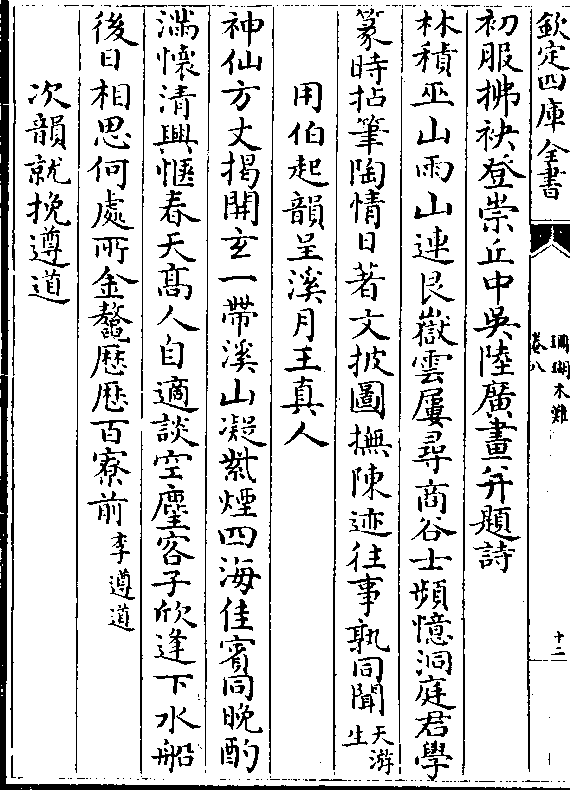 欽定四庫全書
珊瑚木難
卷八
十二
初服拂袂登崇丘中吳陸廣畫并題詩
林積巫山雨山連艮嶽雲屢尋商谷士頻憶洞庭君學
篆時拈筆陶情日著文披圖撫陳迹往事孰同聞天游生
用伯起韻呈溪月王真人
神仙方丈揭開玄一帶溪山凝紫煙四海佳賓同晚酌
滿懷清興愜春天高人自適談空麈客子欣逢下水船
後日相思何處所金鼇歷歷百寮前李遵道
次韻就挽遵道